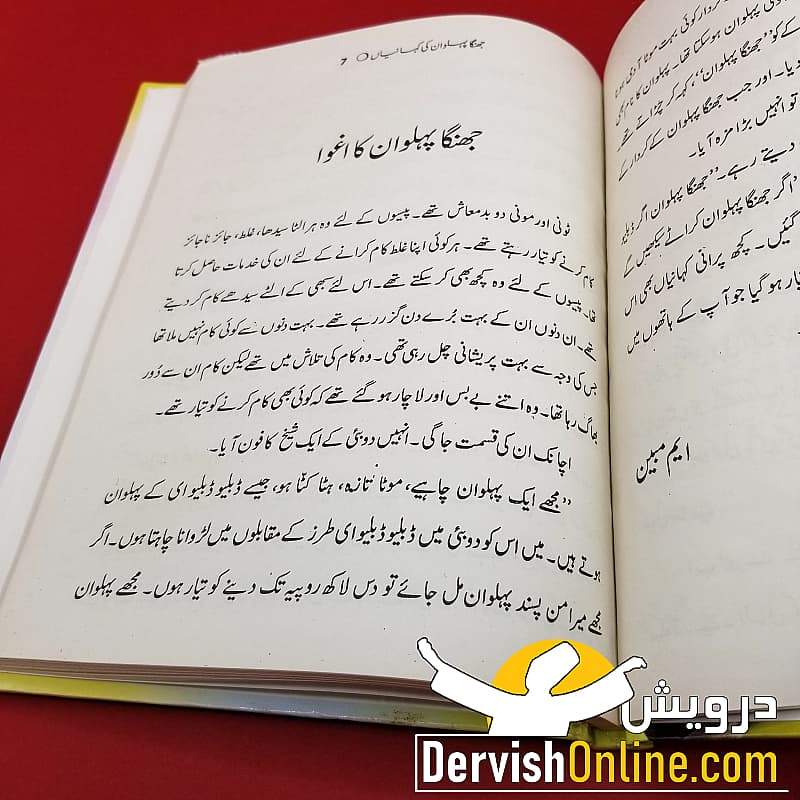 دی پہلوان
کردار کوئی بہت موٹا آدمی ہوتا
پہلوان ہوسکتا تھا۔ پہلوان کا نام بھی
کے کو ’’جھنگا پہلوان‘‘، کہہ کر چڑاتے تھے
دیا۔ اور جب جھنگا پہلوان کے کردار کے
تو انہیں بڑا مزہ آیا۔
دیتے رہے۔ ’’جھنگا پہلوان اگر ڈبلیو
’اگر جھنگا پہلوان کراٹے سیکھیں گے
گئیں۔ کچھ پرانی کہانیاں بھی اس
یار ہو گیا جو آپ کے ہاتھوں میں
ایم مبین
جھنگا پہلوان کی کہانیاں ○ 7
جھنگا پہلوان کا اغوا
ٹونی اور مونی دو بدمعاش تھے۔ پیسوں کے لئے وہ ہر الٹا سیدھا، غلط، جائز ناجائز
کام کرنے کو تیار رہتے تھے۔ ہر کوئی اپنا غلط کام کرانے کے لئے ان کی خدمات حاصل کرتا
تھا۔ پیسوں کے لئے وہ کچھ بھی کر سکتے تھے۔ اس لئے سبھی کے الٹے سیدھے کام کر دیتے
تھے۔ ان دنوں ان کے بہت بُرے دن گزر رہے تھے۔ بہت دنوں سے کوئی کام نہیں ملا تھا
جس کی وجہ سے بہت پریشانی چل رہی تھی۔ وہ کام کی تلاش میں تھے لیکن کام ان سے دُور
بھاگ رہا تھا۔ وہ اتنے بے بس اور لاچار ہو گئے تھے کہ کوئی بھی کام کرنے کو تیار تھے۔
اچانک ان کی قسمت جاگی۔ انہیں دوبئی کے ایک شیخ کا فون آیا۔
’’مجھے ایک پہلوان چاہیے، موٹا تازہ، ہٹا کٹا ہو، جیسے ڈبلیو ڈبلیو ای کے پہلوان
ہوتے ہیں۔ میں اس کو دوبئی میں ڈبلیو ڈبلیو ای طرز کے مقابلوں میں لڑوانا چاہتا ہوں۔ اگر
مجھے میرا من پسند پہلوان مل جائے تو دس لاکھ روپیہ تک دینے کو تیار ہوں۔ مجھے پہلوان
درویش
DervishOnline.com